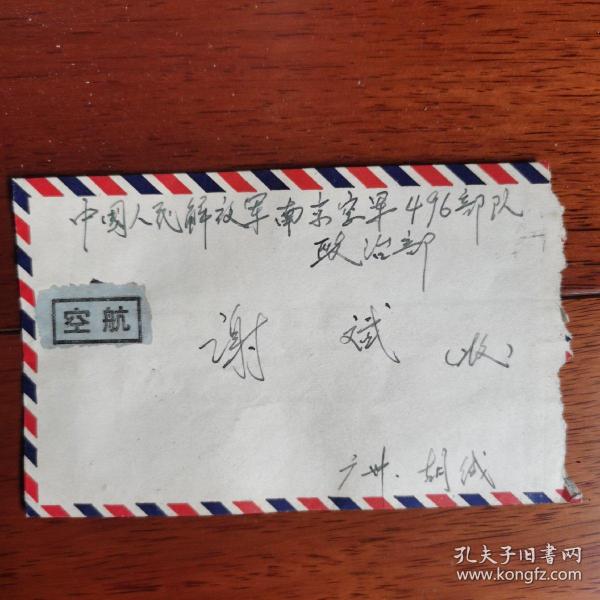 中國人民解放军南京空军496部队
政治部
航空
谢 斌 (收)
广州.胡
孔夫子旧书网
www.kongfz.com